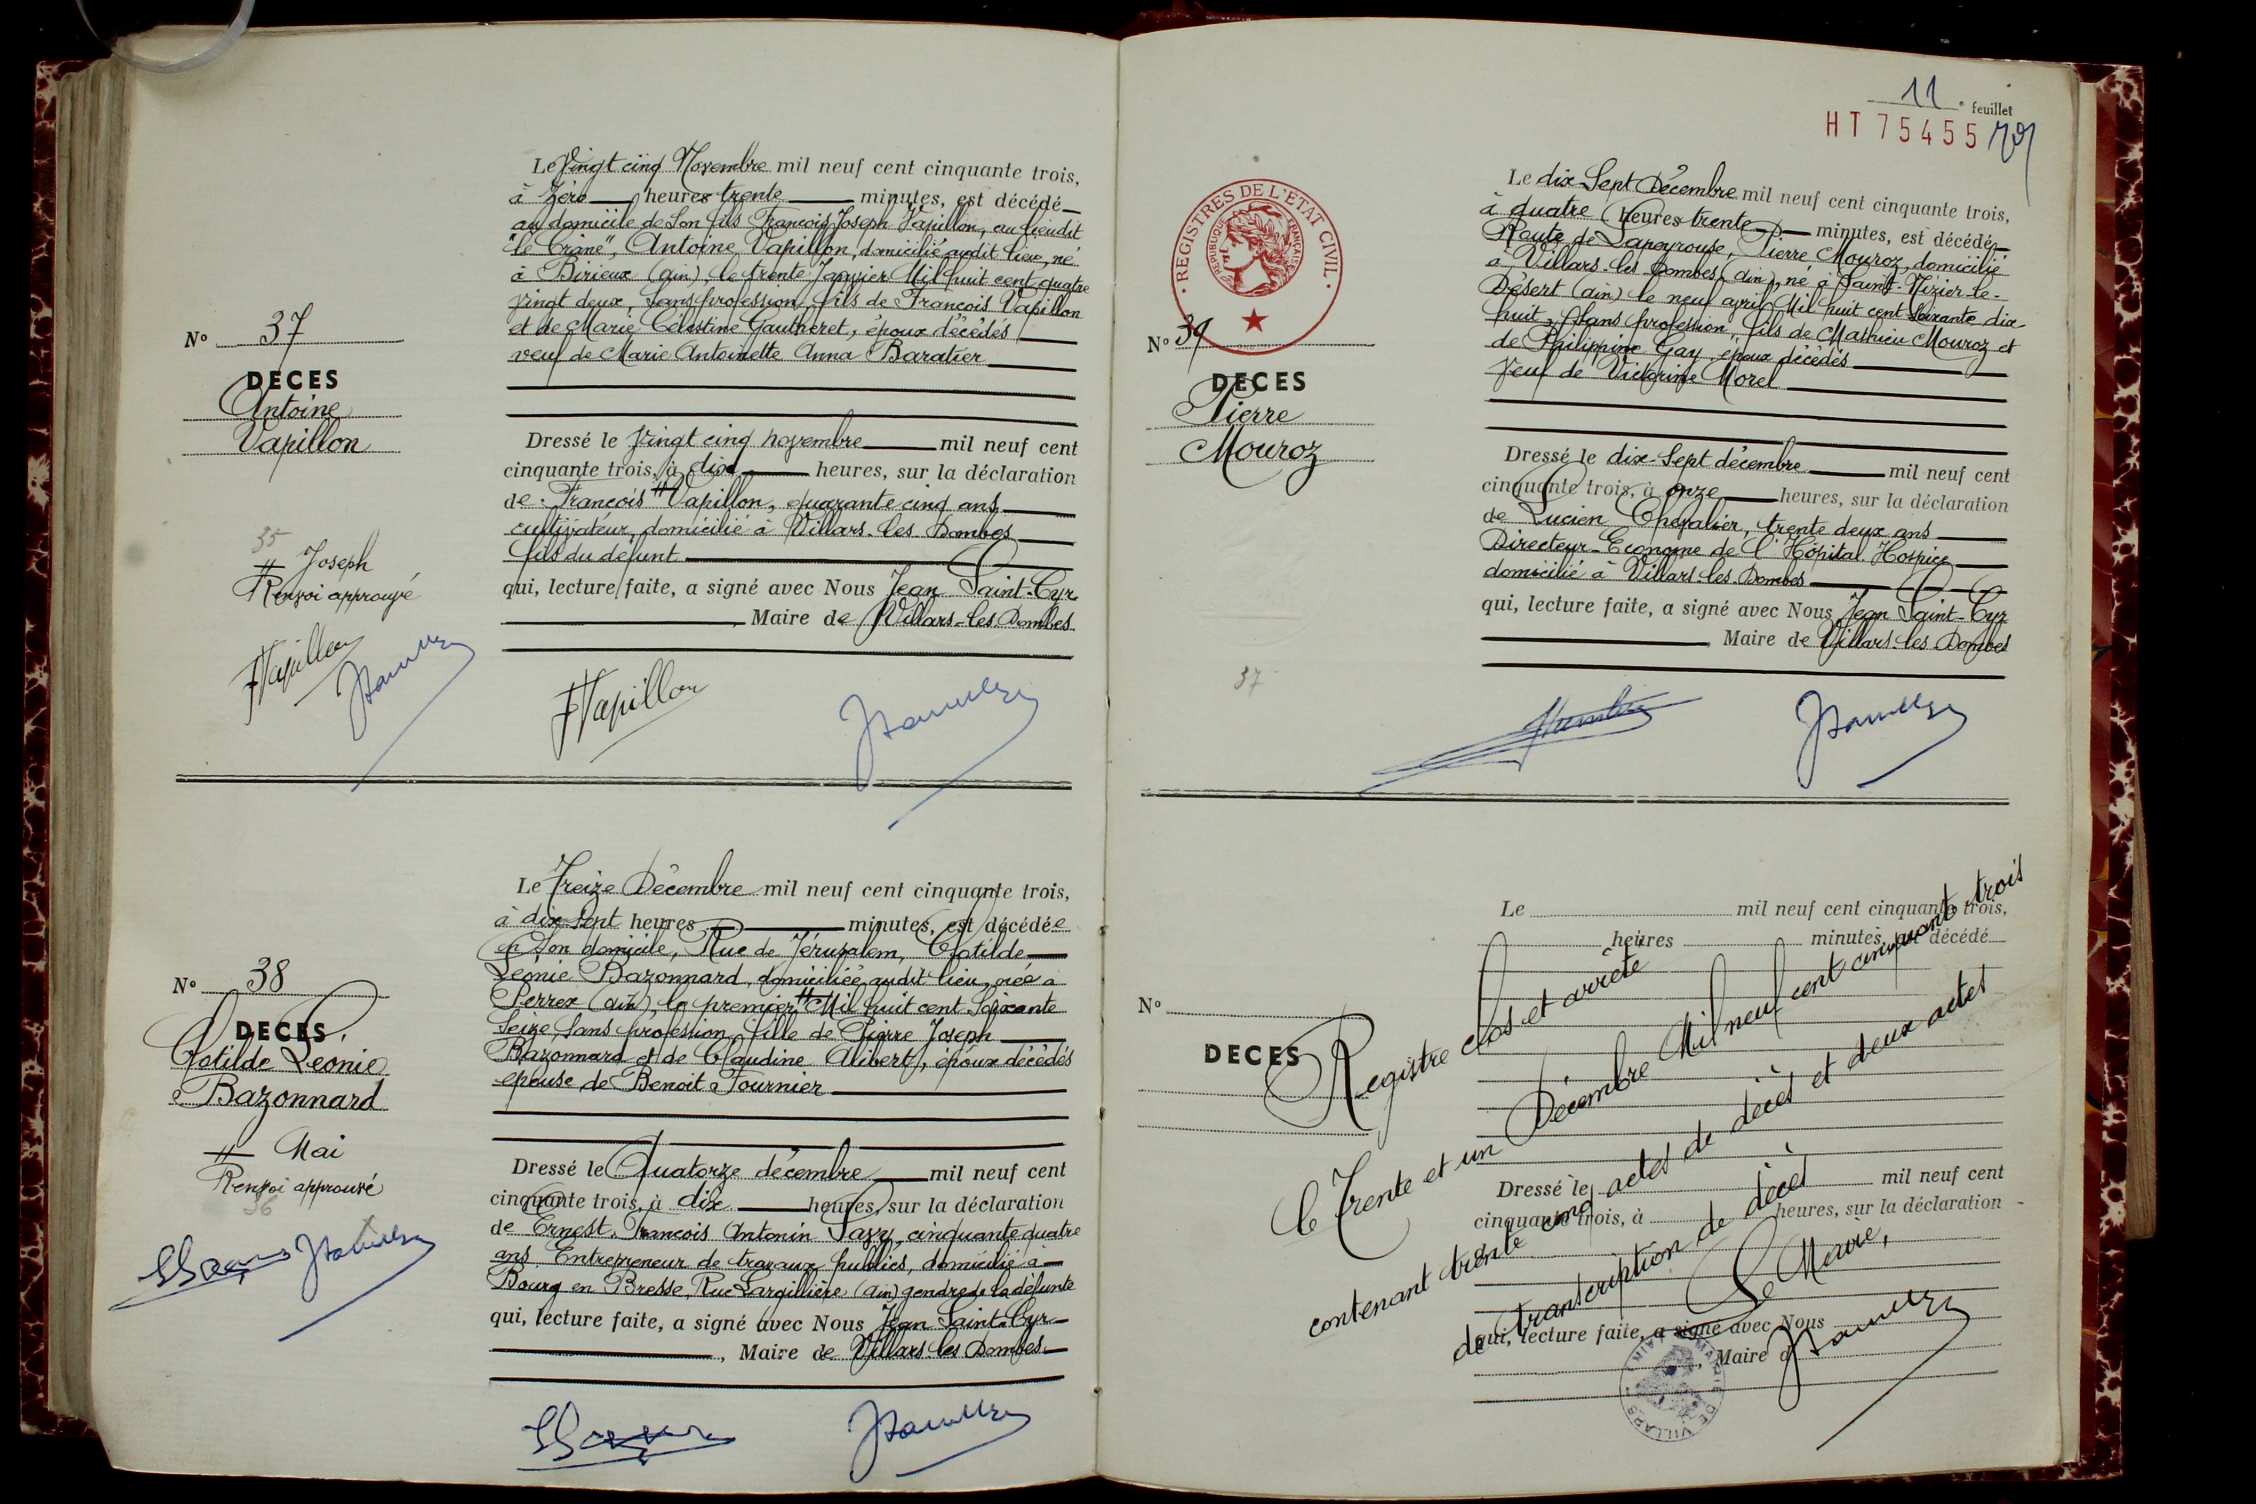 Le Vingt cinq Novembre mil neuf cent cinquante trois,
à zéro heures trente minutes, est décédé
au domicile de Son fils François Joseph Vapillon, au lieudit
"le Crâne", Antoine Vapillon, domicilié audit lieu, né
à Birieux (ain) le trente Janvier Mil huit cent quatre
vingt deux, Sans profession, fils de François Vapillon
et de Marie Célestine Gautheret, époux décédés
veuf de Marie Antoinette Anna Baratier
No 37
DECES
Antoine
Vapillon
Dressé le vingt cinq novembre mil neuf cent
cinquante trois, à dix heures, sur la déclaration
de François # Vapillon, quarante cinq ans
cultivateur, domicilié à Villars-les-Dombes
fils du défunt
qui, lecture faite, a signé avec Nous Jean Saint-Cyr
Maire de Villars-les-Dombes
35
# Joseph
Renvoi approuvé
FVapillon
FVapillon
Le Treize Décembre mil neuf cent cinquante trois,
à dix-Sept heures minutes, est décédée
en Son domicile, Rue de Jérusalem, Clotilde
Léonie Bazonnard, domiciliée audit lieu, née à
Perrex (ain), le premier # Mil huit cent Soixante
Seize, Sans profession, fille de Pierre Joseph
Bazonnard et de Claudine Alibert, époux décédés
épouse de Benoit Fournier
No 38
DECES
Clotilde Léonie
Bazonnard
# Mai
Renvoi approuvé
36
Dressé le Quatorze décembre mil neuf cent
cinquante trois, à dix heures, sur la déclaration
de Ernest François Antonin Savy, cinquante quatre
ans, Entrepreneur de travaux publics, domicilié à
Bourg en Bresse, Rue Largillière (ain) gendre de la défunte
qui, lecture faite, a signé avec Nous Jean Saint-Cyr
, Maire de Villars les Dombes
11 e feuillet
HT 75455
REGISTRES DE L'ETAT CIVIL
REPUBLIQUE FRANÇAISE
Le dix-Sept Décembre mil neuf cent cinquante trois,
à quatre heures trente minutes, est décédé
Route de Lapeyrouse, Pierre Mouroz, domicilié
à Villars-les Dombes (ain), né à Saint-Nizier-le-
Désert (ain) le neuf avril Mil huit cent Soixante dix
huit, Sans profession, fils de Mathieu Mouroz et
de Philippine Gay, époux décédés
veuf de Victorine Morel
No 39
DECES
Pierre
Mouroz
Dressé le dix-Sept décembre mil neuf cent
cinquante trois, à onze heures, sur la déclaration
de Lucien Chevalier, trente deux ans
Directeur-Econome de l'Hôpital-Hospice
domicilié à Villars-les-Dombes
qui, lecture faite, a signé avec Nous Jean Saint-Cyr
Maire de Villars-les Dombes
37
Le mil neuf cent cinquante trois,
heures minutes, est décédé
No
DECES
Dressé le mil neuf cent
cinquante trois, à heures, sur la déclaration
qui, lecture faite, a signé avec Nous
, Maire d
Registre clos et arrêté
le Trente et un Décembre Mil neuf cent cinquante trois
contenant trente cinq actes de décès et deux actes
de transcription de décès
Le Maire,
MAIRIE DE VILLARS AIN